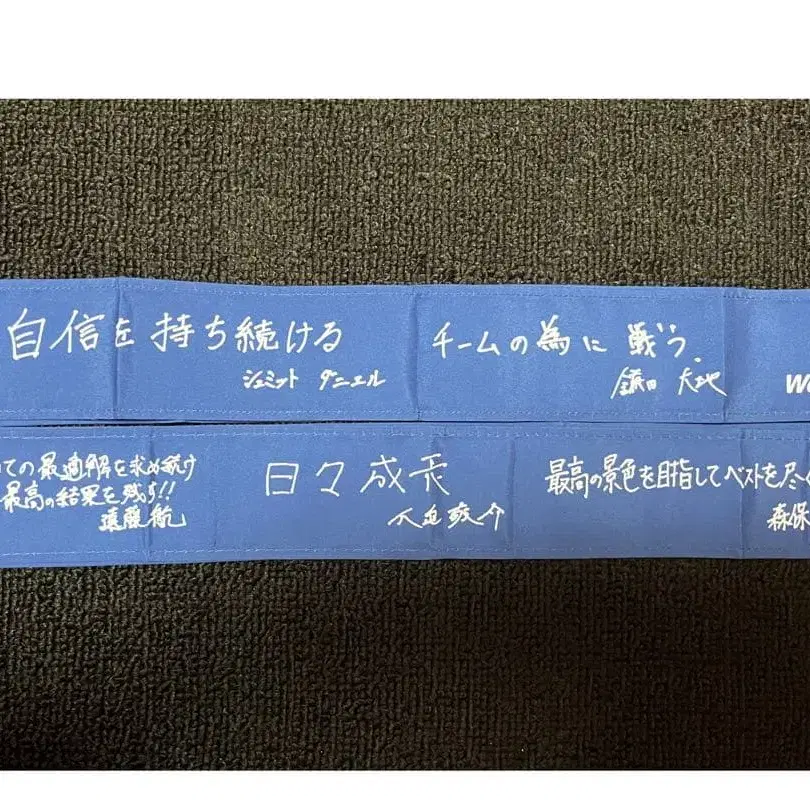 自信を持ち続ける
シュミット ダニエル
チームの為に 戦う.
鎌田 大地
ての最適解を求め続け
最高の結果を残す!!
遠藤 航
日々成長
最高の景色を目指してベストを尽く
森保